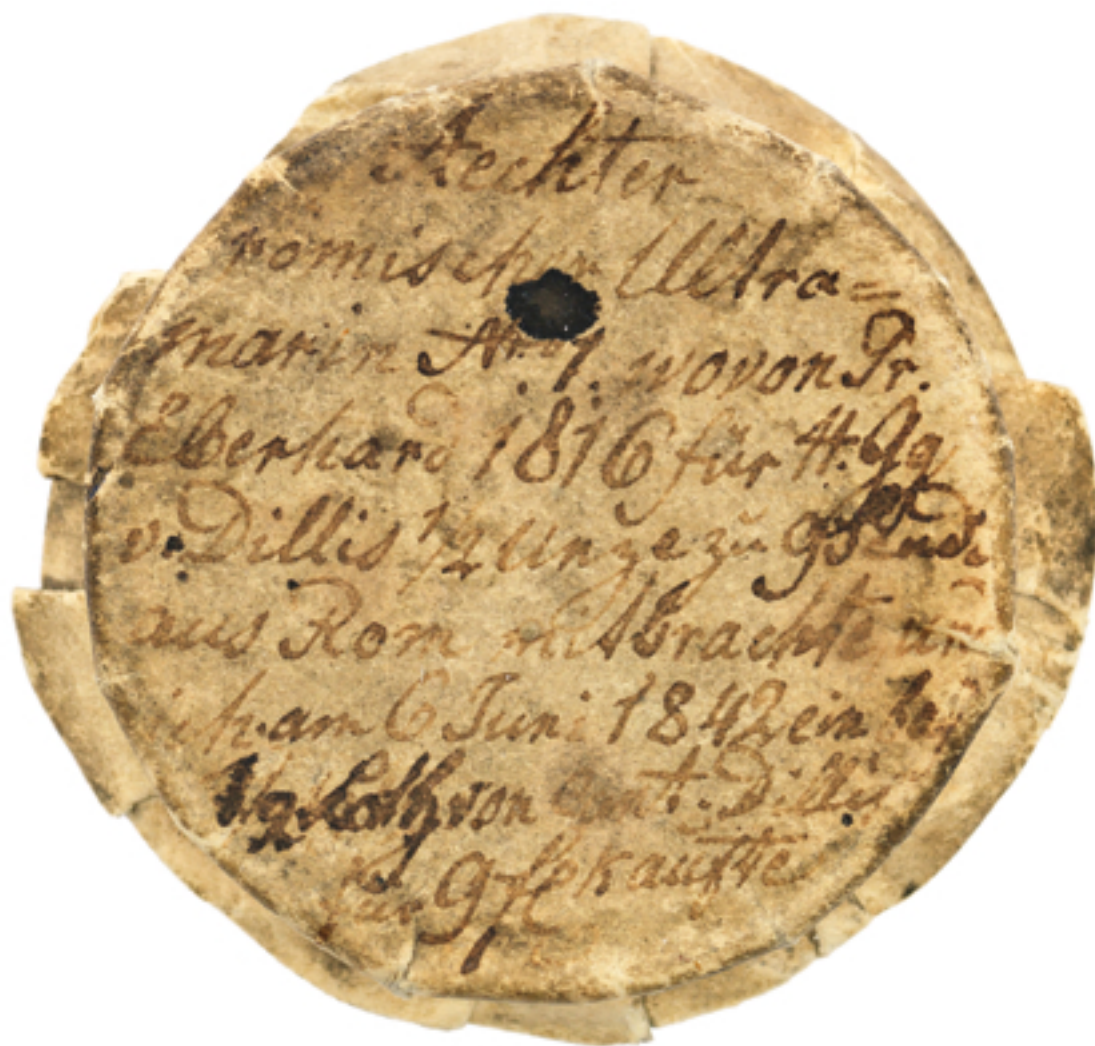 Aechter
römischer Ultra=
marin No 1. wovon Pr.
Eberhard 1816 für H. Gg
v. Dillis 1/2 Unze zu 9
aus Rom mitbrachte
ich am 6 Juni 1842 ein
Loth von Dillis
für 9 f kaufte